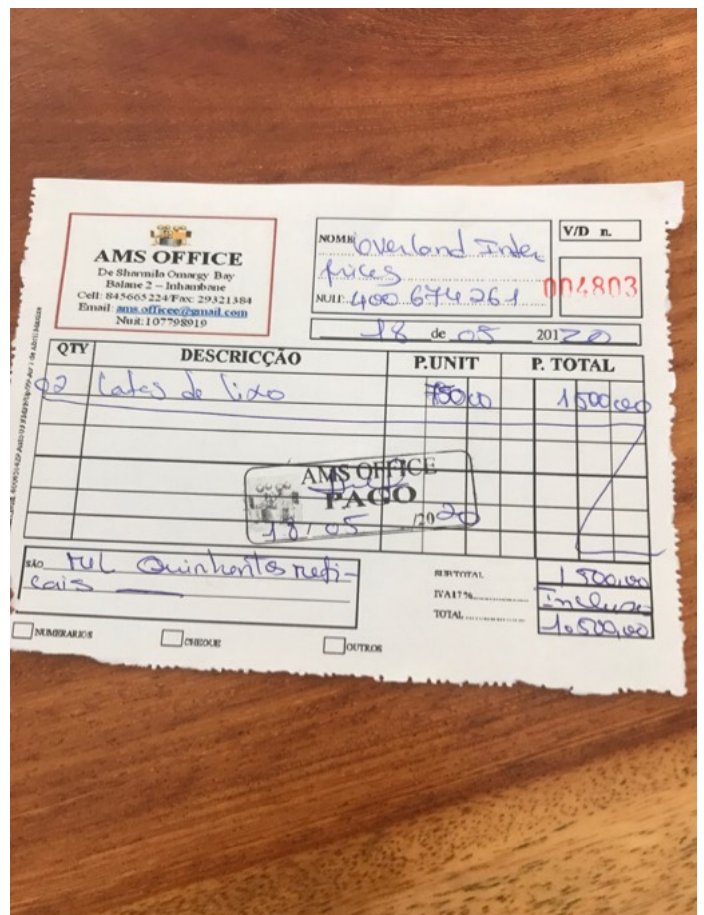 AMS OFFICE
De Sharmila Omargy Bay
Balane 2 – Inhambane
Cell: 845665224/Fax: 29321384
Email: ams.officee@gmail.com
Nuit:107798919
NOME Overland Inter
prices
NUIT: 400 674 261
V/D n.
004803
18 de 05 20120
QTY DESCRICÇÃO P.UNIT P. TOTAL
02 Latas de lixo 750,00 1500,00
AMS OFFICE
PAGO
18/05/2020
SÃO Mil Quinhentos meti-
cais
SUBTOTAL 1500,00
IVA17% Incluso
TOTAL 1.500,00
NUMERARIOS CHEQUE OUTROS